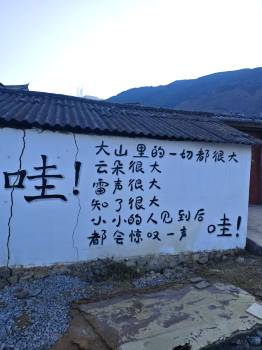 哇！
大山里的一切都很大
云朵很大
雷声很大
知了很大
小小的人见到后
都会惊叹一声 哇！